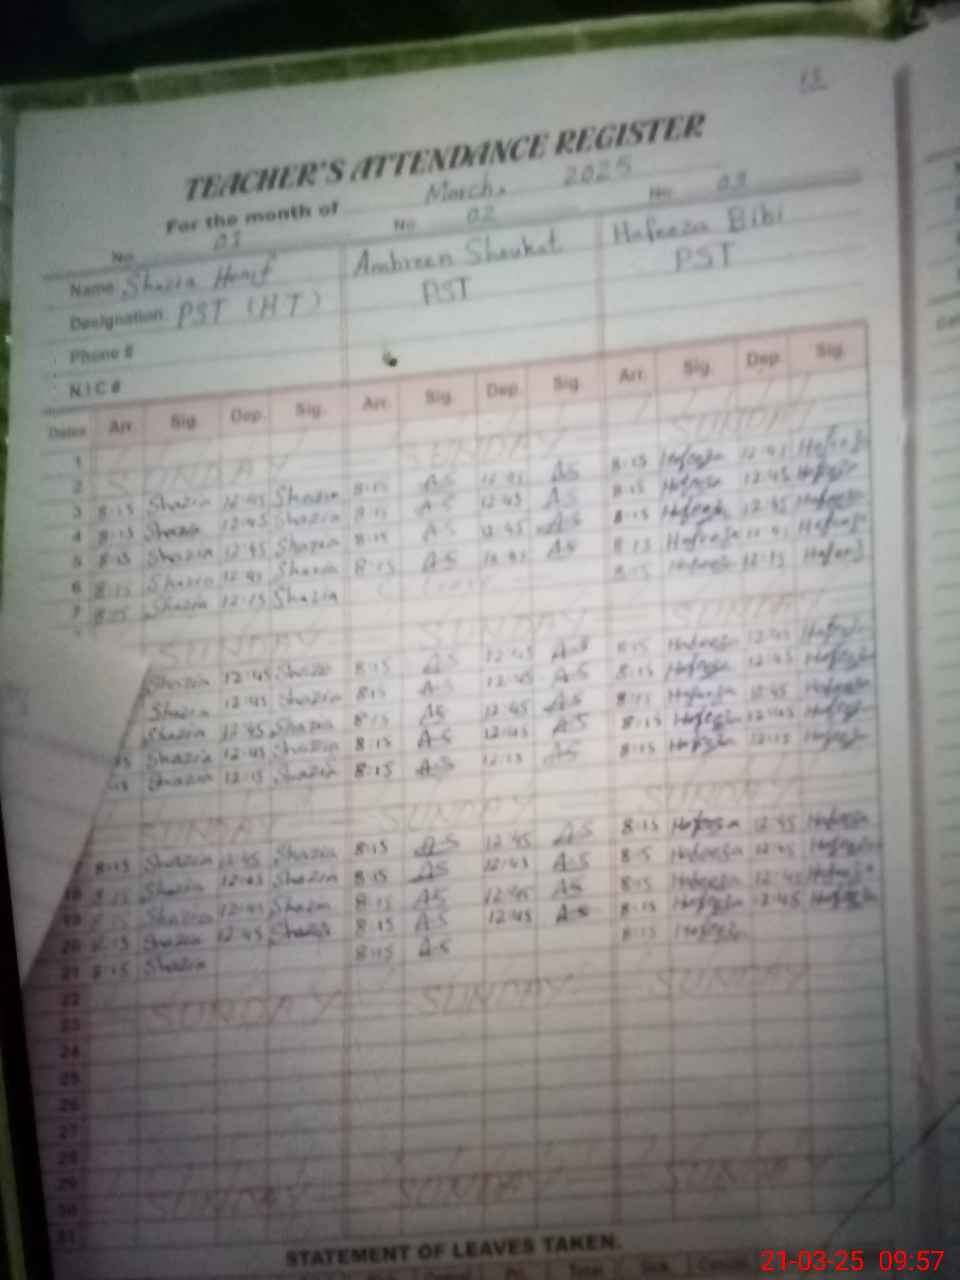 13
TEACHER'S ATTENDANCE REGISTER
For the month of March, 2025
No 01 No 02 No 03
Name Shazia Hanif Ambreen Shoukat Hafeeza Bibi
Designation PST (HT) PST PST
Phone #
N.I.C #
Dates Arr. Sig. Dep. Sig. Arr. Sig. Dep. Sig. Arr. Sig. Dep. Sig.
1
2 SUNDAY SUNDAY SUNDAY
3 8:15 Shazia 12:45 Shazia 8:15 A.S 12:45 A.S 8:15 Hafeeza 12:45 Hafeeza
4 8:15 Shazia 12:45 Shazia 8:15 A.S 12:45 A.S 8:15 Hafeeza 12:45 Hafeeza
5 8:15 Shazia 12:45 Shazia 8:15 A.S 12:45 A.S 8:15 Hafeeza 12:45 Hafeeza
6 8:15 Shazia 12:45 Shazia 8:15 A.S 12:45 A.S 8:15 Hafeeza 12:45 Hafeeza
7 8:15 Shazia 12:15 Shazia 8:15 Hafeeza 12:15 Hafeeza
SUNDAY SUNDAY SUNDAY
Shazia 12:45 Shazia 8:15 A.S 12:45 A.S 8:15 Hafeeza 12:45 Hafeeza
Shazia 12:45 Shazia 8:15 A.S 12:45 A.S 8:15 Hafeeza 12:45 Hafeeza
Shazia 12:45 Shazia 8:15 A.S 12:45 A.S 8:15 Hafeeza 12:45 Hafeeza
Shazia 12:45 Shazia 8:15 A.S 12:45 A.S 8:15 Hafeeza 12:45 Hafeeza
Shazia 12:15 Shazia 8:15 A.S 12:15 A.S 8:15 Hafeeza 12:15 Hafeeza
SUNDAY SUNDAY SUNDAY
8:15 Shazia 12:45 Shazia 8:15 A.S 12:45 A.S 8:15 Hafeeza 12:45 Hafeeza
18 8:15 Shazia 12:45 Shazia 8:15 A.S 12:45 A.S 8:15 Hafeeza 12:45 Hafeeza
19 8:15 Shazia 12:45 Shazia 8:15 A.S 12:45 A.S 8:15 Hafeeza 12:45 Hafeeza
20 8:15 Shazia 12:45 Shazia 8:15 A.S 12:45 A.S 8:15 Hafeeza 12:45 Hafeeza
21 8:15 Shazia 8:15 A.S 8:15 Hafeeza
22
23 SUNDAY SUNDAY SUNDAY
24
25
26
27
28
29
30 SUNDAY SUNDAY SUNDAY
31
STATEMENT OF LEAVES TAKEN.
21-03-25 09:57